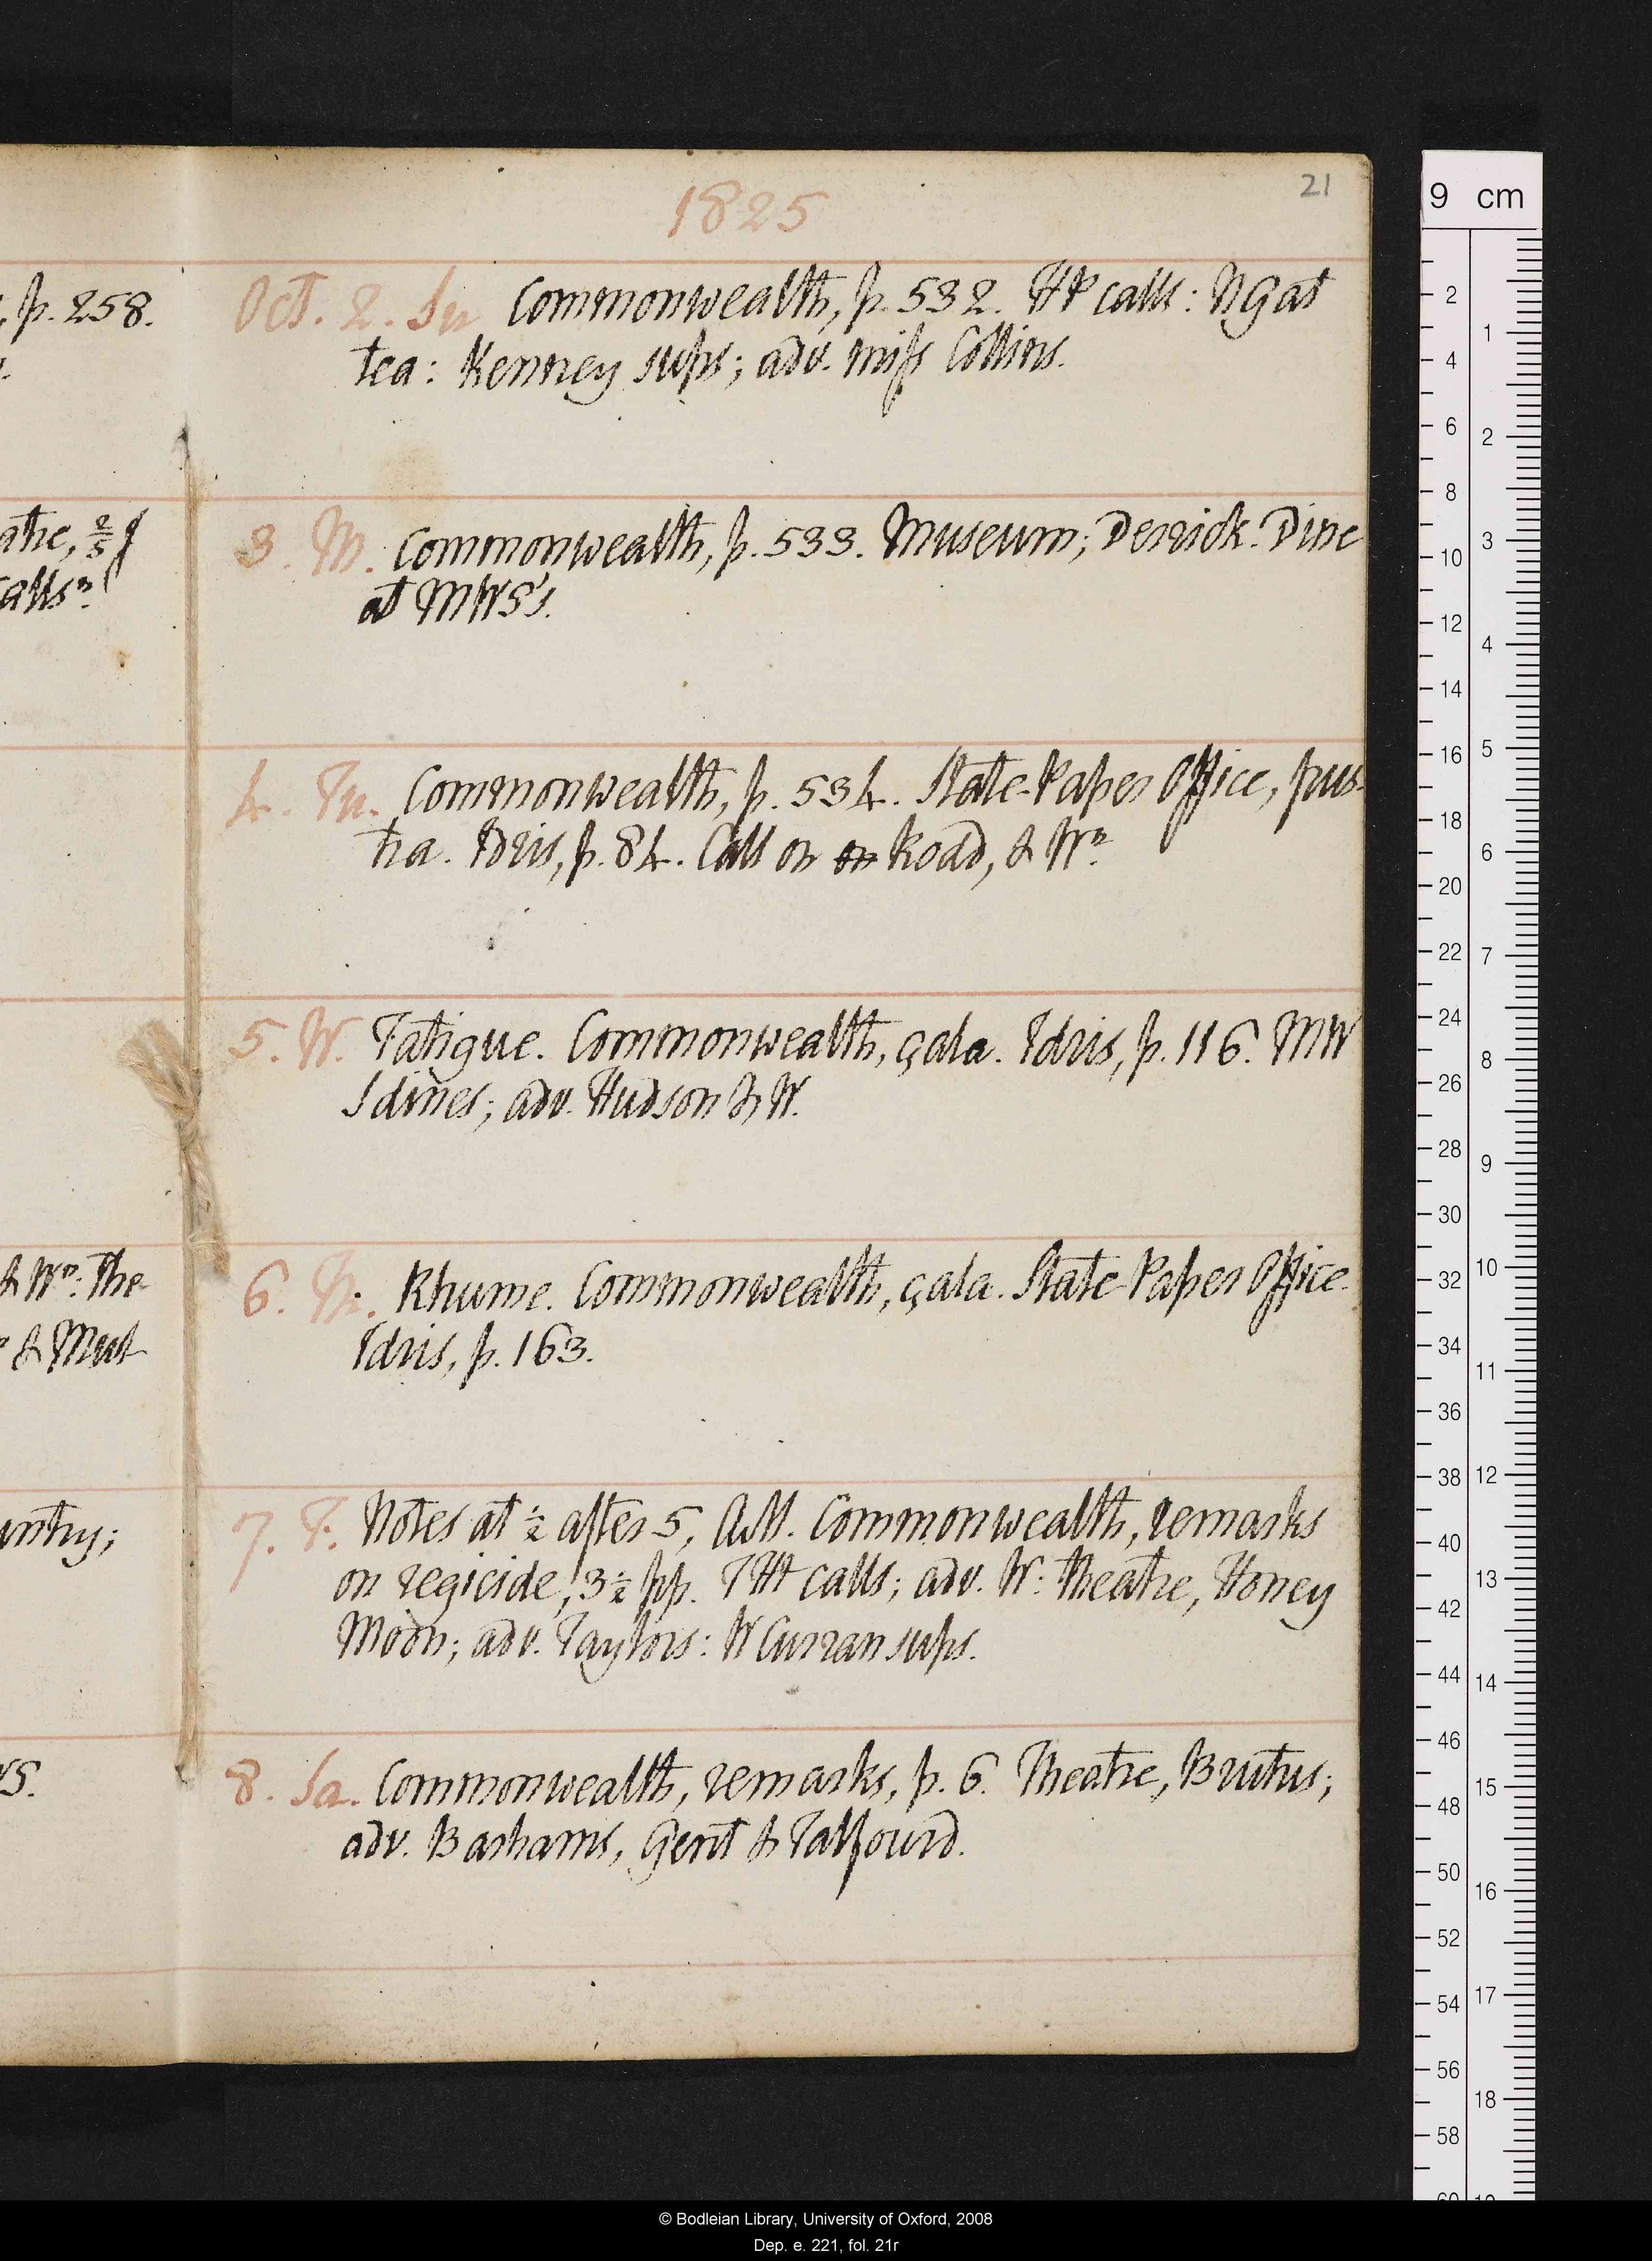 21
1825
, p. 258.
Oct. 2. Su Commonwealth, p. 532. HP calls: NG at
tea: Kenney sups; adv. miss Collins.
3. M. Commonwealth, p. 533. Museum; Derrick. Dine
at MWS's.
4. Tu. Commonwealth, p. 534. State-Paper Office, frus-
tra. Idris, p. 84. Call on on Road, & Wn.
5. W. Fatigue. Commonwealth, çala. Idris, p. 116. MW
S dines; adv. Hudson & W.
6. Th. Rhume. Commonwealth, çala. State-Paper Office.
Idris, p. 163.
7. F. Notes at ½ after 5, A.M. Commonwealth, remarks
on regicide, 3½ pp. THt calls; adv. W: theatre, Honey
Moon; adv. Taylors: W Curran sups.
8. Sa. Commonwealth, remarks, p. 6. Theatre, Brutus;
adv. Bashams, Gent & Talfourd.
9 cm
2 4 6 8 10 12 14 16 18 20 22 24 26 28 30 32 34 36 38 40 42 44 46 48 50 52 54 56 58
1 2 3 4 5 6 7 8 9 10 11 12 13 14 15 16 17 18
© Bodleian Library, University of Oxford, 2008
Dep. e. 221, fol. 21r